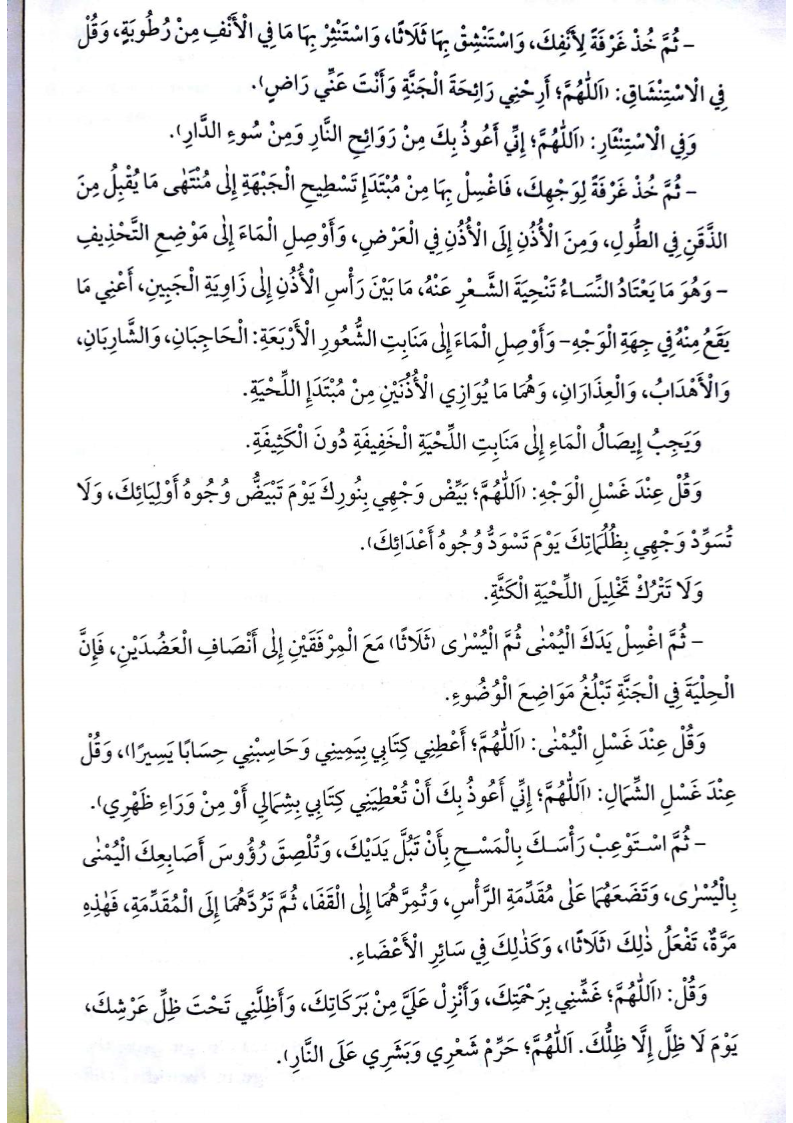 – ثُمَّ خُذْ غَرْفَةً لِأَنْفِكَ، وَاسْتَنْشِقْ بِهَا ثَلَاثًا، وَاسْتَنْثِرْ بِهَا مَا فِي الْأَنْفِ مِنْ رُطُوبَةٍ، وَقُلْ
فِي الْاسْتِنْشَاقِ: (اَللّٰهُمَّ؛ أَرِحْنِي رَائِحَةَ الْجَنَّةِ وَأَنْتَ عَنِّي رَاضٍ).
وَفِي الْاسْتِنْثَارِ: (اَللّٰهُمَّ؛ إِنِّي أَعُوذُ بِكَ مِنْ رَوَائِحِ النَّارِ وَمِنْ سُوءِ الدَّارِ).
– ثُمَّ خُذْ غَرْفَةً لِوَجْهِكَ، فَاغْسِلْ بِهَا مِنْ مُبْتَدَإِ تَسْطِيحِ الْجَبْهَةِ إِلٰى مُنْتَهٰى مَا يُقْبِلُ مِنَ
الذَّقَنِ فِي الطُّولِ، وَمِنَ الْأُذُنِ إِلَى الْأُذُنِ فِي الْعَرْضِ، وَأَوْصِلِ الْمَاءَ إِلٰى مَوْضِعِ التَّحْذِيفِ
– وَهُوَ مَا يَعْتَادُ النِّسَاءُ تَنْحِيَةَ الشَّعْرِ عَنْهُ، مَا بَيْنَ رَأْسِ الْأُذُنِ إِلٰى زَاوِيَةِ الْجَبِينِ، أَعْنِي مَا
يَقَعُ مِنْهُ فِي جِهَةِ الْوَجْهِ– وَأَوْصِلِ الْمَاءَ إِلٰى مَنَابِتِ الشُّعُورِ الْأَرْبَعَةِ: الْحَاجِبَانِ، وَالشَّارِبَانِ،
وَالْأَهْدَابُ، وَالْعِذَارَانِ، وَهُمَا مَا يُوَازِي الْأُذُنَيْنِ مِنْ مُبْتَدَإِ اللِّحْيَةِ.
وَيَجِبُ إِيصَالُ الْمَاءِ إِلٰى مَنَابِتِ اللِّحْيَةِ الْخَفِيفَةِ دُونَ الْكَثِيفَةِ.
وَقُلْ عِنْدَ غَسْلِ الْوَجْهِ: (اَللّٰهُمَّ؛ بَيِّضْ وَجْهِي بِنُورِكَ يَوْمَ تَبْيَضُّ وُجُوهُ أَوْلِيَائِكَ، وَلَا
تُسَوِّدْ وَجْهِي بِظُلُمَاتِكَ يَوْمَ تَسْوَدُّ وُجُوهُ أَعْدَائِكَ).
وَلَا تَتْرُكْ تَخْلِيلَ اللِّحْيَةِ الْكَثَّةِ.
– ثُمَّ اغْسِلْ يَدَكَ الْيُمْنٰى ثُمَّ الْيُسْرٰى (ثَلَاثًا) مَعَ الْمِرْفَقَيْنِ إِلٰى أَنْصَافِ الْعَضُدَيْنِ، فَإِنَّ
الْحِلْيَةَ فِي الْجَنَّةِ تَبْلُغُ مَوَاضِعَ الْوُضُوءِ.
وَقُلْ عِنْدَ غَسْلِ الْيُمْنٰى: (اَللّٰهُمَّ؛ أَعْطِنِي كِتَابِي بِيَمِينِي وَحَاسِبْنِي حِسَابًا يَسِيرًا)، وَقُلْ
عِنْدَ غَسْلِ الشِّمَالِ: (اَللّٰهُمَّ؛ إِنِّي أَعُوذُ بِكَ أَنْ تُعْطِيَنِي كِتَابِي بِشِمَالِي أَوْ مِنْ وَرَاءِ ظَهْرِي).
– ثُمَّ اسْتَوْعِبْ رَأْسَكَ بِالْمَسْحِ بِأَنْ تَبُلَّ يَدَيْكَ، وَتُلْصِقَ رُؤُوسَ أَصَابِعِكَ الْيُمْنٰى
بِالْيُسْرٰى، وَتَضَعَهُمَا عَلٰى مُقَدِّمَةِ الرَّأْسِ، وَتُمِرَّهُمَا إِلَى الْقَفَا، ثُمَّ تَرُدَّهُمَا إِلَى الْمُقَدِّمَةِ، فَهٰذِهِ
مَرَّةٌ، تَفْعَلُ ذٰلِكَ (ثَلَاثًا)، وَكَذٰلِكَ فِي سَائِرِ الْأَعْضَاءِ.
وَقُلْ: (اَللّٰهُمَّ؛ غَشِّنِي بِرَحْمَتِكَ، وَأَنْزِلْ عَلَيَّ مِنْ بَرَكَاتِكَ، وَأَظِلَّنِي تَحْتَ ظِلِّ عَرْشِكَ،
يَوْمَ لَا ظِلَّ إِلَّا ظِلُّكَ. اَللّٰهُمَّ؛ حَرِّمْ شَعْرِي وَبَشَرِي عَلَى النَّارِ).